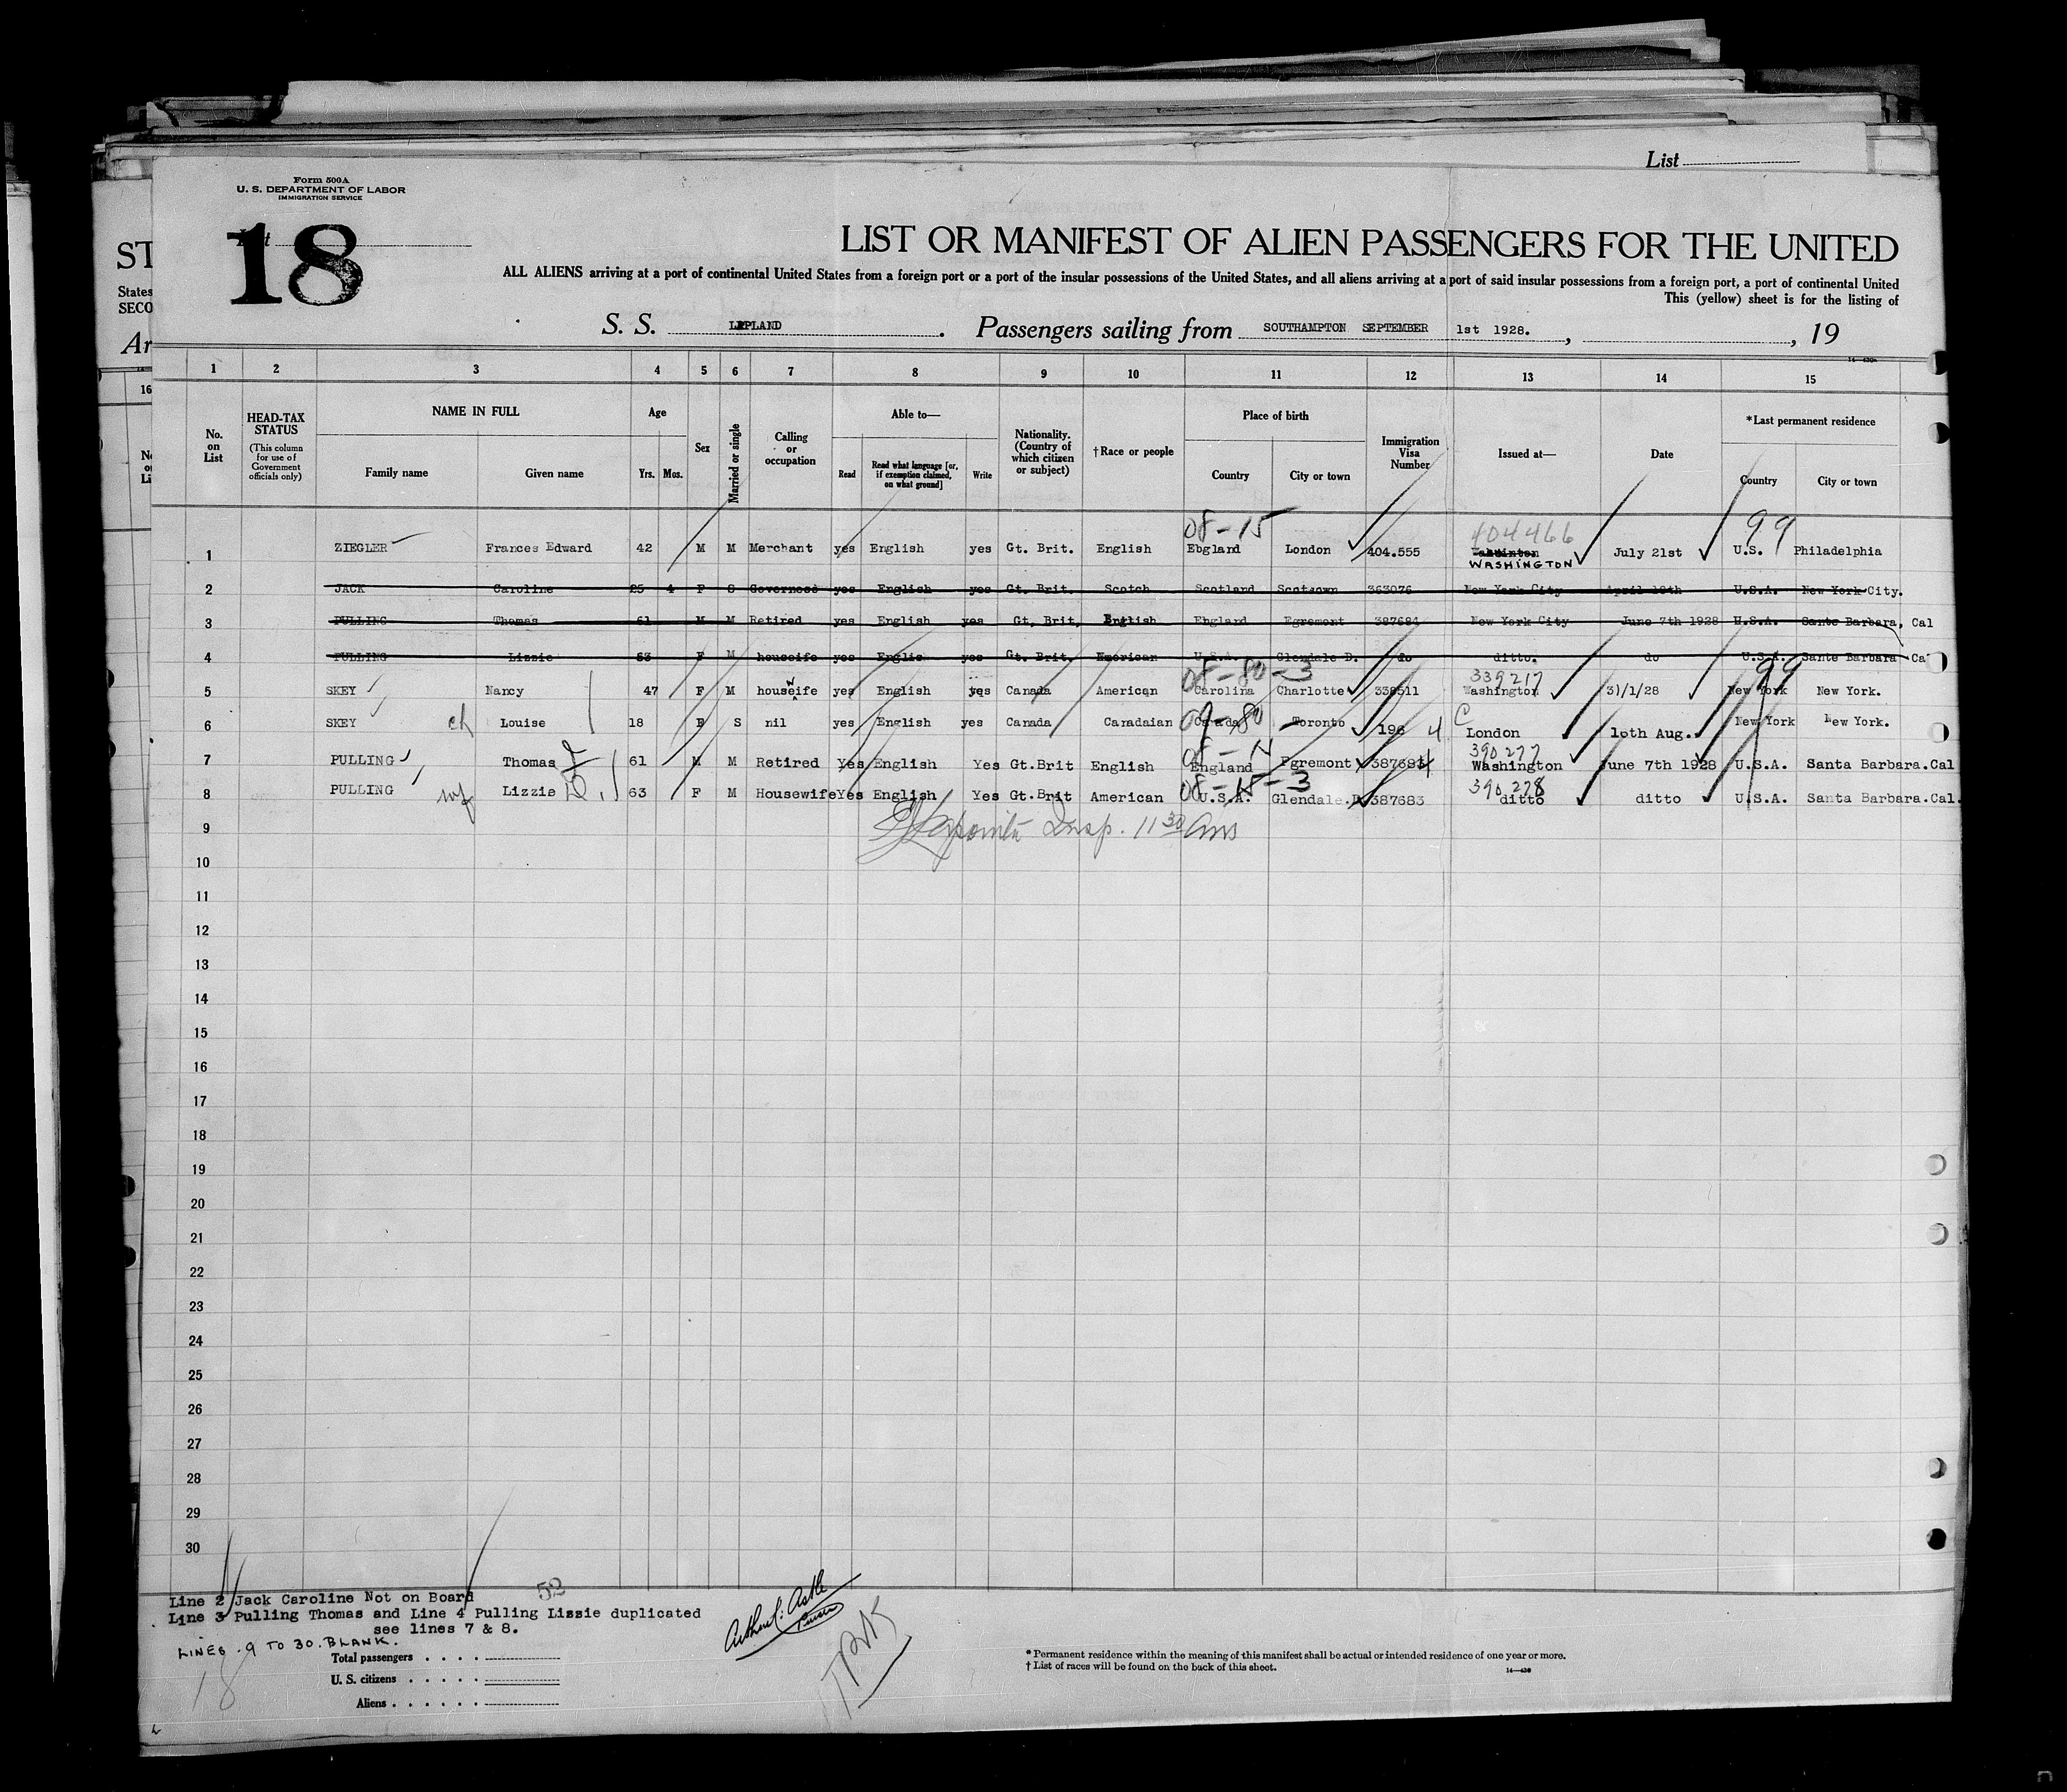 List
Form 500A
U. S. DEPARTMENT OF LABOR
IMMIGRATION SERVICE
18
ST
LIST OR MANIFEST OF ALIEN PASSENGERS FOR THE UNITED
States
SECO
ALL ALIENS arriving at a port of continental United States from a foreign port or a port of the insular possessions of the United States, and all aliens arriving at a port of said insular possessions from a foreign port, a port of continental United
This (yellow) sheet is for the listing of
Ar
S. S. LAPLAND. Passengers sailing from SOUTHAMPTON SEPTEMBER 1st 1928. , , 19
1 2 3 4 5 6 7 8 9 10 11 12 13 14 15
16
No. on List
HEAD-TAX STATUS (This column for use of Government officials only)
NAME IN FULL
Family name Given name
Age
Yrs. Mos.
Sex
Married or single
Calling or occupation
Able to—
Read Read what language [or, if exemption claimed, on what ground] Write
Nationality. (Country of which citizen or subject)
†Race or people
Place of birth
Country City or town
Immigration Visa Number
Issued at—
Date
*Last permanent residence
Country City or town
08-15 404466 99
1 ZIEGLER Frances Edward 42 M M Merchant yes English yes Gt. Brit. English Ebgland London 404.555 WASHINGTON July 21st U.S. Philadelphia
2 JACK Caroline 25 4 F S Governess yes English yes Gt. Brit. Scotch Scotland 363076 New York City April U.S.A. New York City.
3 PULLING Thomas 61 M M Retired yes English yes Gt. Brit. English England Egremont 387684 New York City June 7th 1928 U.S.A. Sante Barbara, Cal
4 PULLING Lizzie 63 F M houseife yes Englis yes Gt. Brit. American U.S.A. Glendale D. do ditto. do U.S.A. Sante Barbara Ca
08-80-3 339217 99
5 SKEY Nancy 47 F M housewife yes English yes Canada American Carolina Charlotte 338511 Washington 31/1/28 New York New York.
09-80 C
6 SKEY ch Louise 18 F S nil yes English yes Canada Caradaian Canada Toronto 196 4 London 10th Aug. New York New York.
390277
7 PULLING Thomas 61 M M Retired Yes English Yes Gt.Brit English England Egremont 387684 Washington June 7th 1928 U.S.A. Santa Barbara.Cal
08-15-3 390278
8 PULLING wf Lizzie D. 63 F M Housewife Yes English Yes Gt.Brit American U.S.A. Glendale.D 387683 ditto ditto U.S.A. Santa Barbara.Cal.
9 Insp. 11 30 Am
10
11
12
13
14
15
16
17
18
19
20
21
22
23
24
25
26
27
28
29
30
Line 2 Jack Caroline Not on Board 52
Line 3 Pulling Thomas and Line 4 Pulling Lissie duplicated
see lines 7 & 8.
LINES . 9 TO 30. BLANK.
18
Total passengers
U. S. citizens
Aliens
* Permanent residence within the meaning of this manifest shall be actual or intended residence of one year or more.
† List of races will be found on the back of this sheet.
14—430